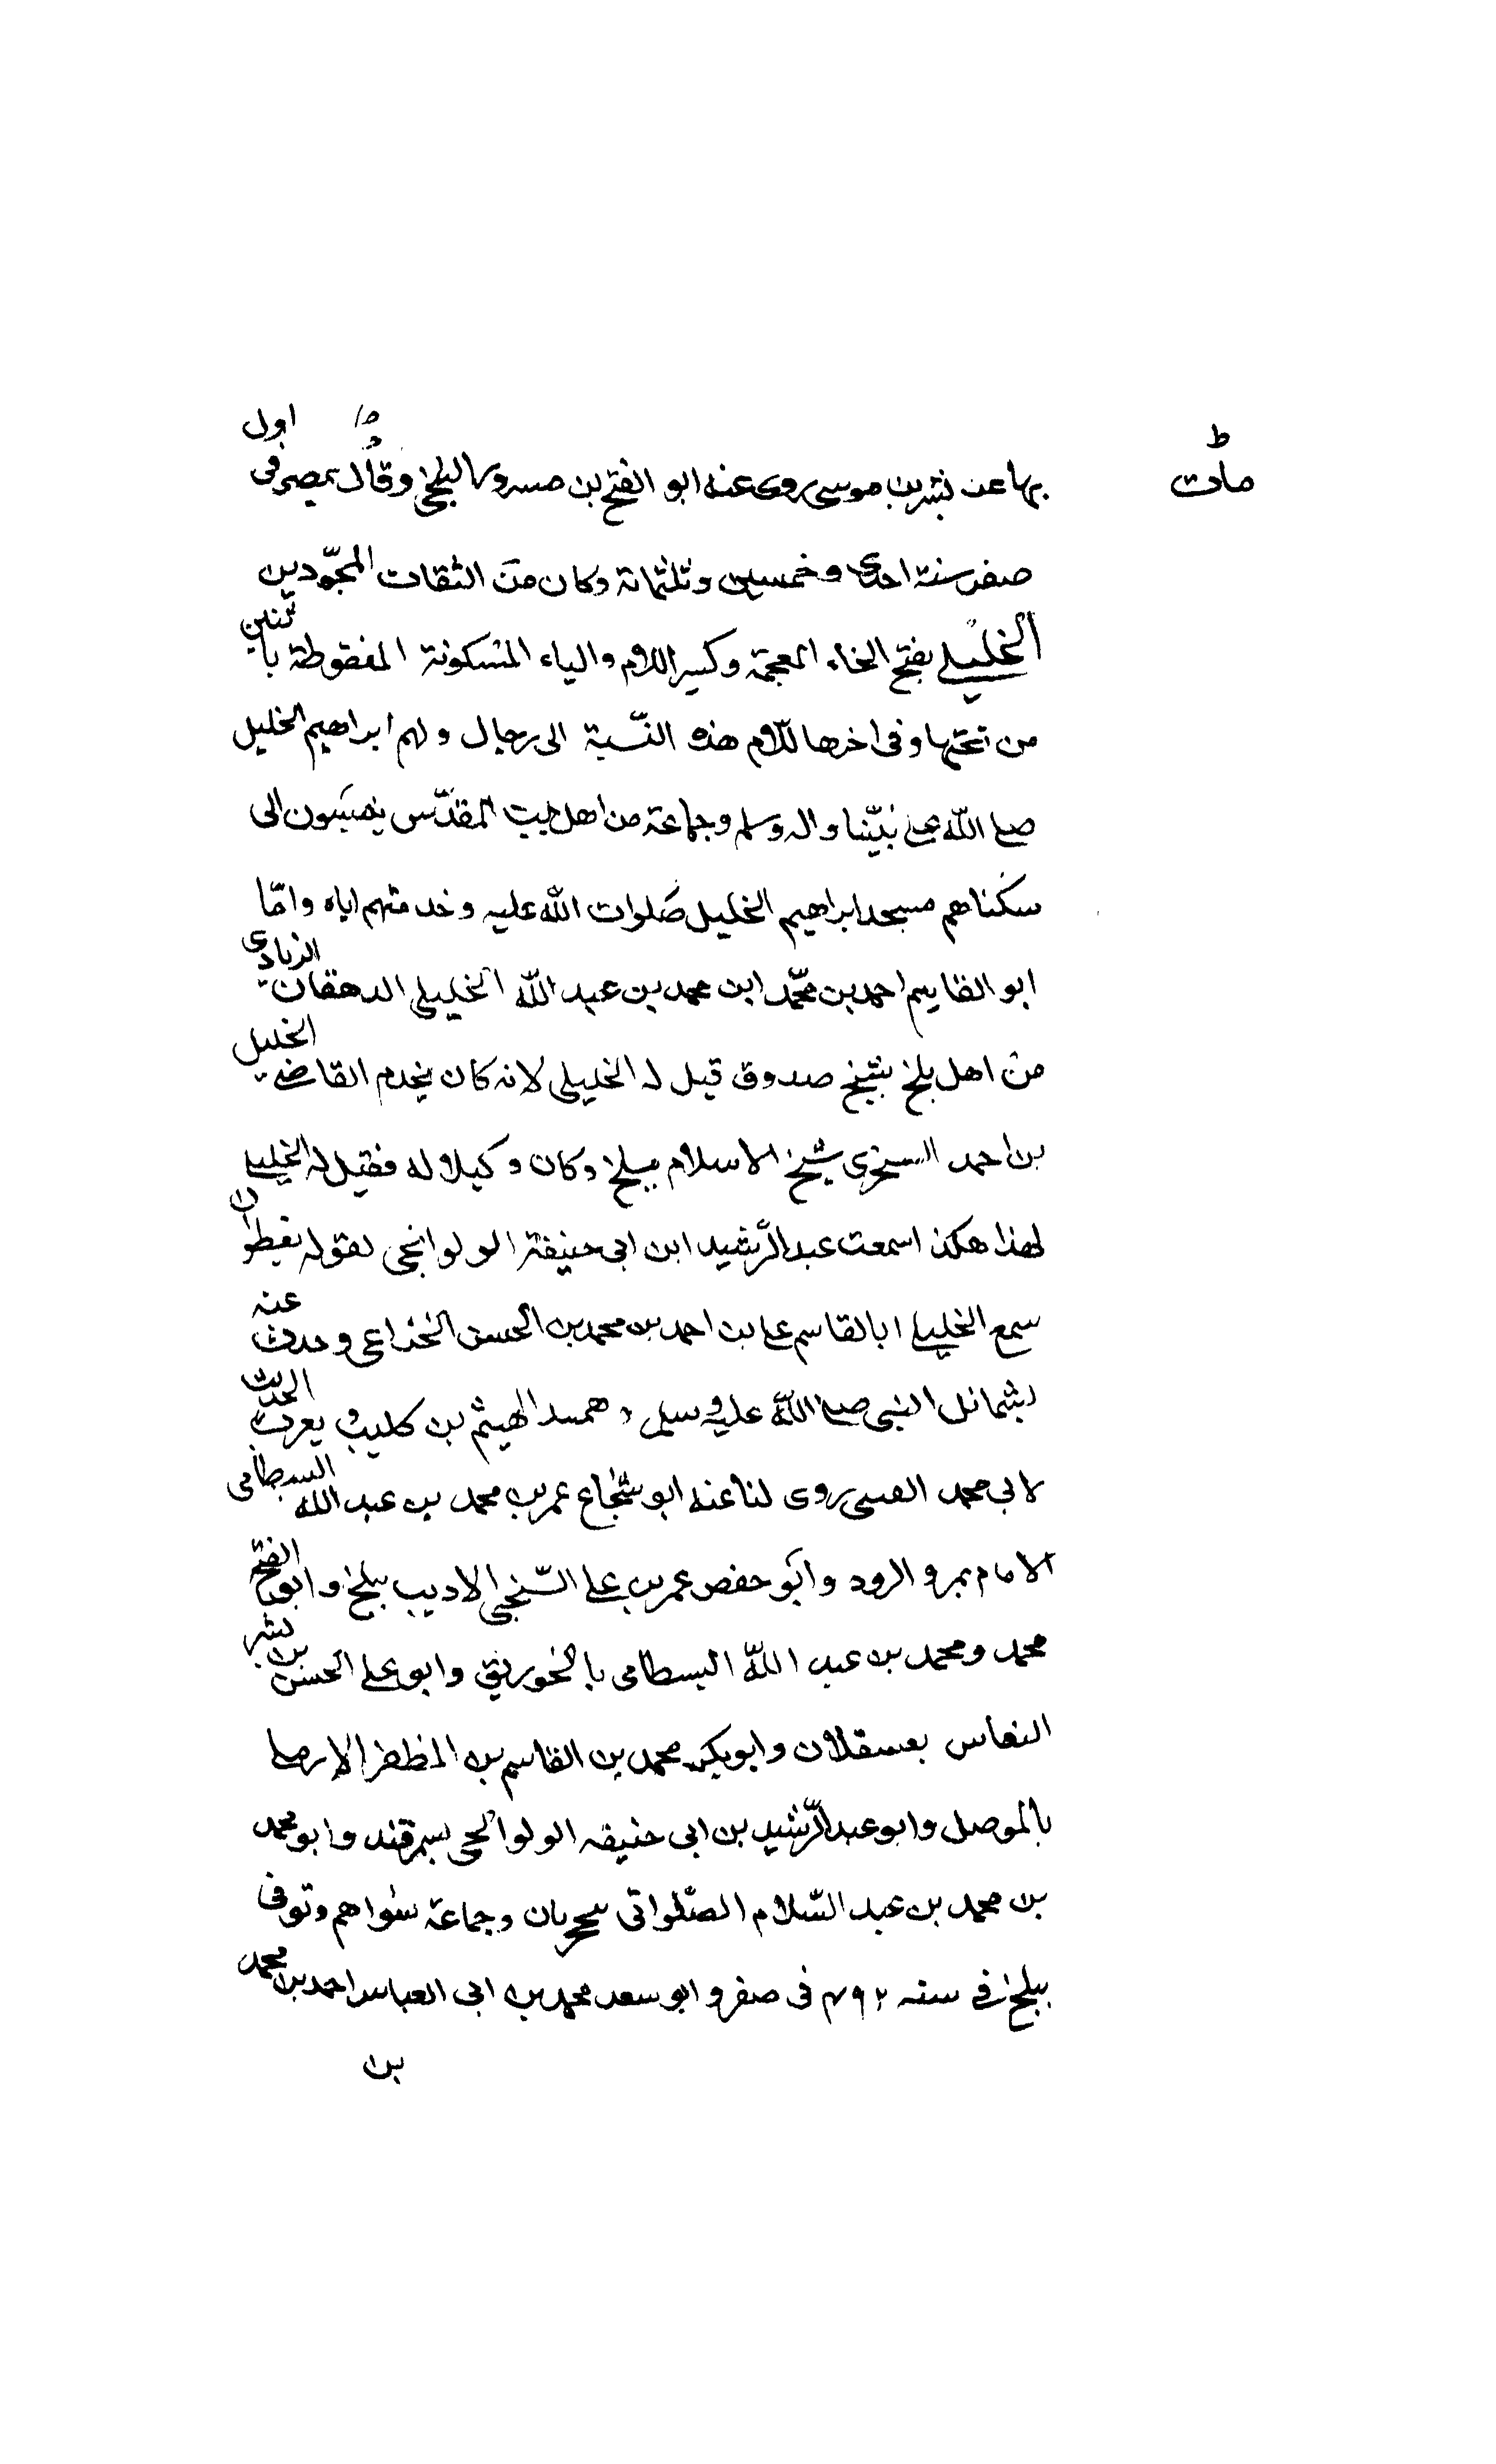 بها عن بشر بن موسى روى عنه ابو الفتح بن مسرور البلخى وقال بمصر فى اول
ط
مات
صفر سنة احدى وخمسين وثلثمائة وكان من الثقات المجوّدين
الخليلى بفتح الخاء المعجمة وكسر اللام والياء المسكونة المنقوطة باثنين
من تحتها وفى اخرها للام هذه النّسبة الى رجال ولهم ابراهيم الخليل
صلى اللّه على نبيّنا واله وسلم وجماعة من اهل بيت المقدّس ينسبون الى
سكناهم مسجد ابراهيم الخليل صلوات اللّه عليه وخدمتهم اياه وامّا
ابو القاسم احمد بن محمّد ابن محمد بن عبد اللّه الخليلى الدهقان الزيادى
من اهل بلخ شيخ صدوق قيل له الخليلى لانه كان يخدم القاضى الخليل
بن احمد السجزى شيخ الاسلام ببلخ وكان وكيلا له فقيل له الخليلى
لهذا هكذا سمعت عبد الرّشيد ابن ابى حنيفة الولوالجى بقوله
سمع الخليلى ابا القاسم على بن احمد بن محمد بن الحسن الخزاعى وحدث عنه
بشمائل النبى صلى اللّه عليه وسلم الهيثم بن كليب و الحديث
لابى محمد روى لنا عنه ابو شجاع عمر بن محمد بن عبد الله البسطامى
الامام بمرو الرود وابو حفص عمر بن على السّنجى الاديب ببلخ وابو الفتح
محمد ومحمد بن عبد اللّه البسطامى بالخورنق وابو على الحسن بن بشر
النعاس بعسقلان وابوبكر محمد بن القاسم بن المظفر
بالموصل وابو عبد الرّشيد بن ابى حنيفه الولوالجى بسمرقند وابو محمد
بن محمد بن عبد السّلام الصّلواتى وجماعة سواهم وتوفى
ببلخ فى سنه ٤٩٢ فى صفر و ابو سعد محمد بن ابى العباس احمد بن محمد
بن